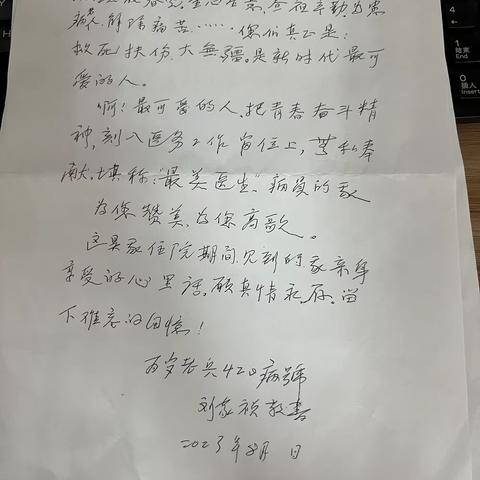 病人,解除病苦……你们真正是:
救死扶伤,大爱无疆。是新时代最可
爱的人。
啊!最可爱的人,把青春奋斗精
神,刻入医务工作岗位上,无私奉
献,堪称:"最美医生"。病员的我
为您赞美,为您高歌。
这是我住院期间,见到的我亲身
享受的心里话,愿真情永存,留
下难忘的回忆!
百岁老兵42 病號
刘 敬書
2023年8月 日
1
结束
End
0
插入
Insert